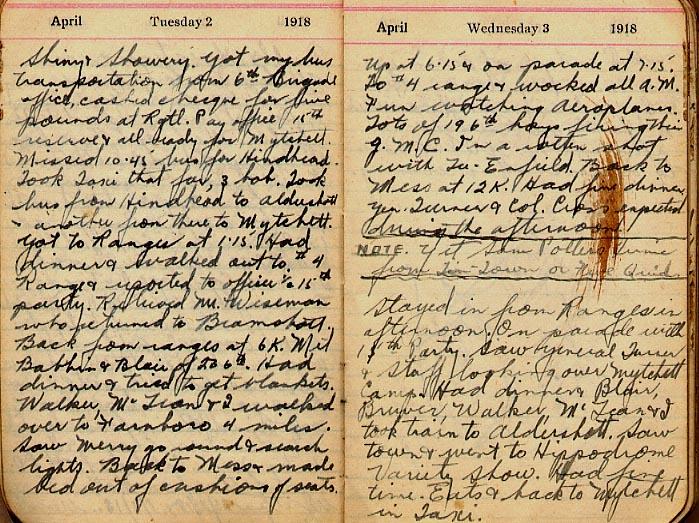 April Tuesday 2 1918
Shiny & Showery. Got my bus
transportation from 6th Brigade
office, cashed cheque for five
pounds at Rgtl. Pay office 15th
reserve & all ready for Mytchett.
Missed 10.45 bus for Hindhead.
Took Taxi that far, 3 bob. Took
bus from Hindhead to Aldershott
& another from there to Mytchett.
Got to Ranges at 1.15. Had
dinner & walked out to #4
Range & reported to officer i/c 15th
party. Relieved Mr. Wiseman
who returned to Bramshott.
Back from ranges at 6 K. Met
Babbin & Blair of 206th. Had
dinner & tried to get blankets.
Walker, McLean & I walked
over to Farnboro 4 miles.
Saw Merry go round & search
lights. Back to Mess & made
bed out of cushions of seats.
April Wednesday 3 1918
Up at 6.15 & on parade at 7.15
To #4 range & worked all A.M.
Fun watching Aeroplanes.
Lots of 196th boys firing their
G.M.C. I'm a rotten shot
with Lee-Enfield. Back to
Mess at 12 K. Had fine dinner,
Gen. Turner & Col. Cross expected
during the afternoon
NOTE. Yet Sam Potters
from or Quid
Stayed in from Ranges in
afternoon. On parade with
15th Party. Saw General Turner
& Staff looking over Mytchett
Camp. Had dinner & Blair,
Bruver, Walker, McLean & I
took train to Aldershott. Saw
town & went to Hippodrome
Variety Show. Had fine
time. Eats & back to Mytchett
in Taxi.